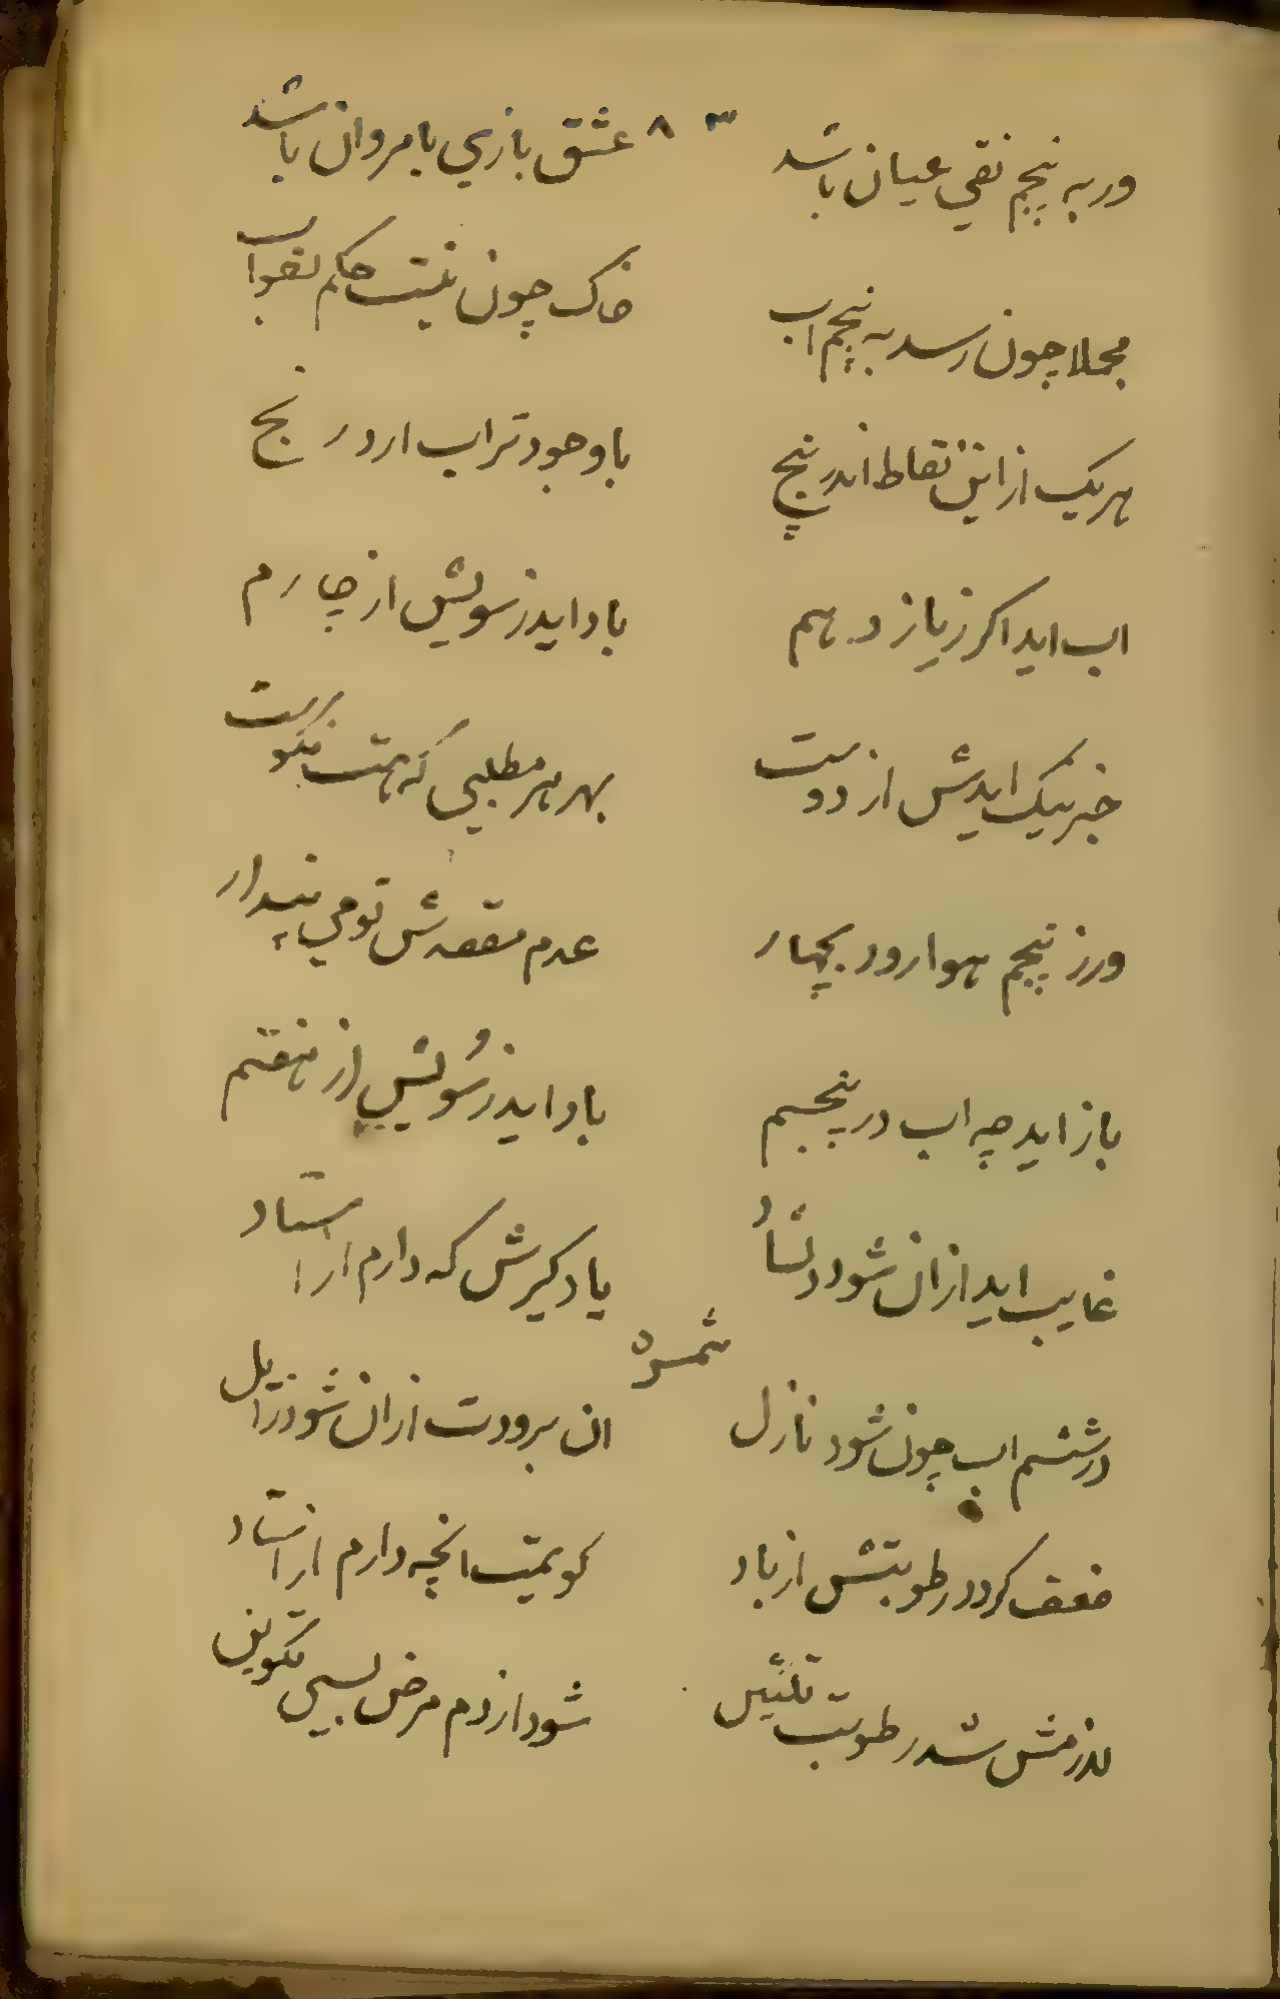 ور به پنجم نقی عیان باشد
۸ ۳ عشق بازی با مروان باشد
مجملا چون رسد به پنجم اب
خاک چون نیست حکم
هریک از این نقاط اندر پنج
باوجود تراب ارد رنج
اب اید اکر زیاز دهم
باد اید ز سویش از چارم
خبر نیک ایدش از دوست
بهر هر مطلبی که هست نکوست
ور ز پنجم هوا رود بچهار
عدم مقصدش تو می پندار
باز اید چه اب در پنجم
باد اید ز سویش از هفتم
غایب اید از ان شود دلشاد
یاد کیرش که دارم از استاد
ثمره
در ششم اب چون شود نازل
ان برودت از ان شود زایل
ضعف کردد رطوبتش از باد
کویمت انچه دارم از استاد
شد رطوبت
شود از دم مرض بسی تکوین